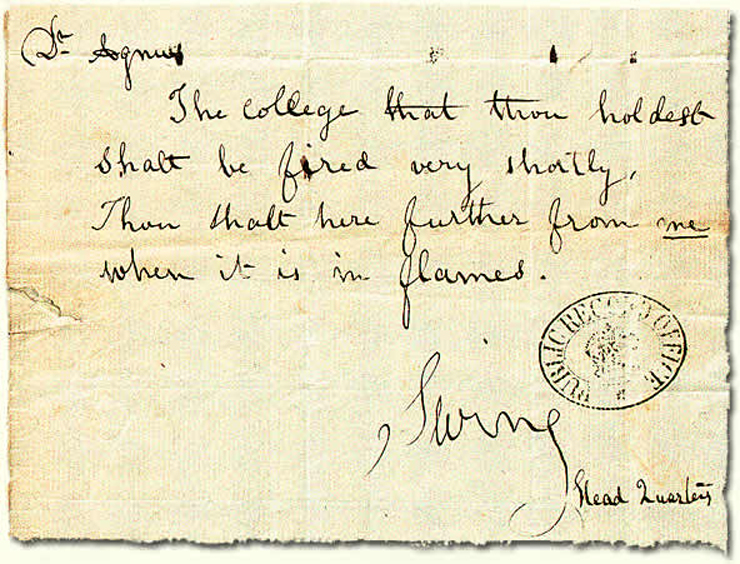 Dr
The college that thou holdest
shall be fired very shortly,
Thou shalt here further from me
when it is in flames.
PUBLIC RECORD OFFICE
Swing
Head Quarters